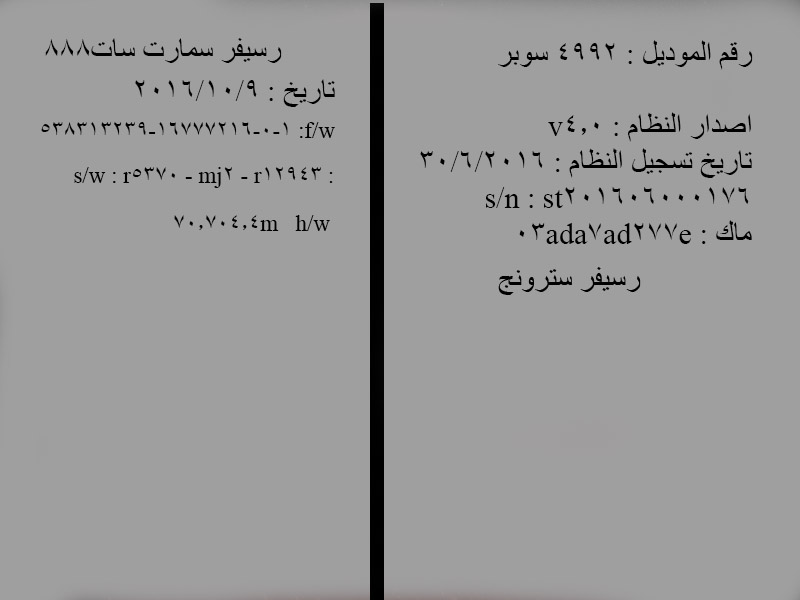 رقم الموديل : ٤٩٩٢ سوبر
اصدار النظام : v٤,٠
تاريخ تسجيل النظام : ٣٠/٦/٢٠١٦
s/n : st٢٠١٦٠٦٠٠٠١٧٦
ماك : ٠٣ada٧ad٢٧٧e
رسيفر سترونج
رسيفر سمارت سات٨٨٨
تاريخ : ٢٠١٦/١٠/٩
f/w: ١-٠-١٦٧٧٧٢١٦-٥٣٨٣١٣٢٣٩
s/w : r٥٣٧٠ - mj٢ - r١٢٩٤٣ :
٧٠,٧٠٤,٤m h/w